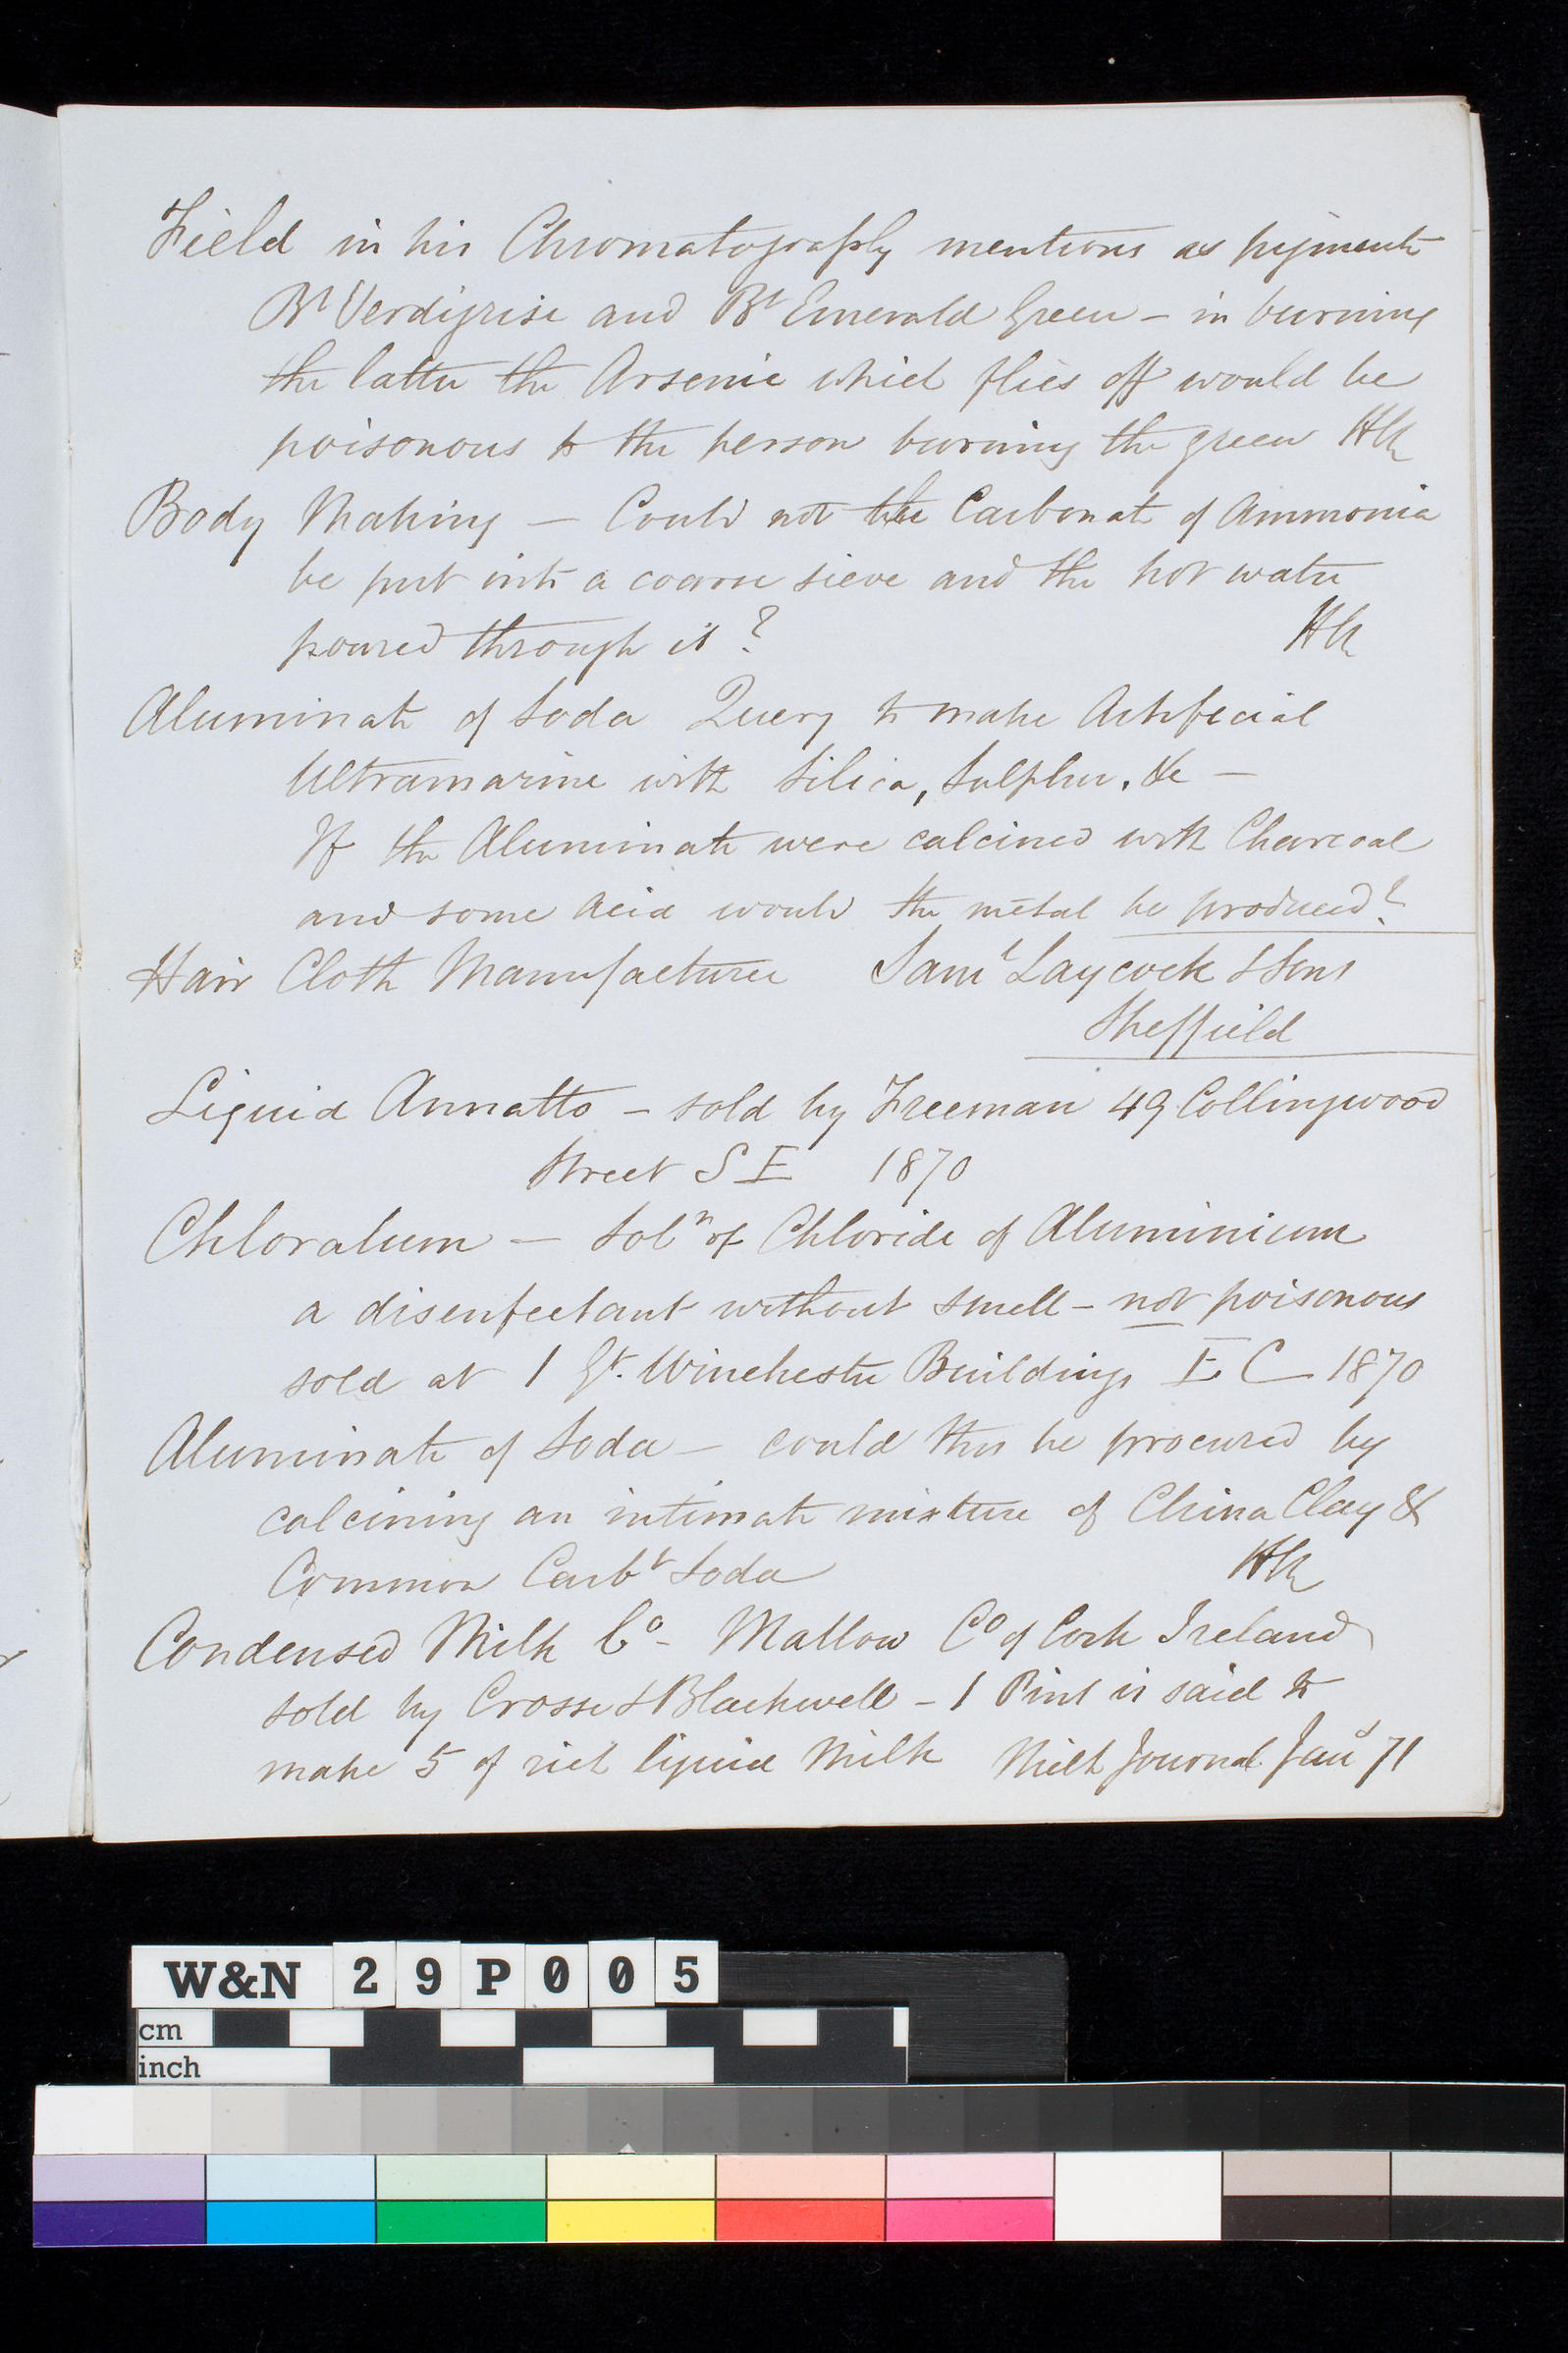 Field in his Chromatography mentions as pigments
Bt Verdigrise and Bt Emerald Green – in burning
the latter the Arsenic which flies off would be
poisonous to the person burning the green HCN
Body Making – Could not the Carbonate of Ammonia
be put into a coarse sieve and the hot water
poured through it?
Aluminate of Soda Query to make Artifecial
Ultramarine with Silica, Sulphur, &c –
If the Aluminate were calcined with Charcoal
and some acid would the metal be produced?
Hair Cloth Manufacturer Saml Laycock & Sons
Sheffield
Liquid Annatto – sold by Freeman 49 Collingwood
Street S E 1870
Chloralum – Soln of Chloride of Aluminium
a disenfectant without smell – not poisonous
sold at 1 Gt. Winchester Buildings E C 1870
Aluminate of Soda – could this be procured by
calcining an intimate mixture of China Clay &
Common Carbt Soda
Condensed Milk Co – Mallow Co of Cork Ireland
sold by Crosse & Blackwell – 1 Pint is said to
make 5 of rich liquid Milk Milk Journal Jany 71
W&N 29P005
cm
inch